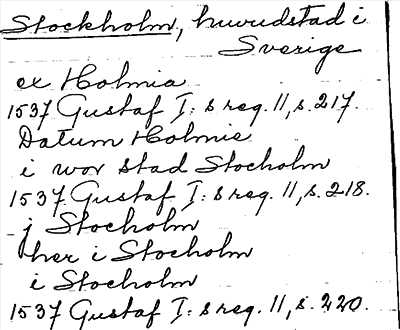 Stockholm, huvudstad i
Sverige
ex Holmia
1537 Gustaf I: s reg. 11, s. 217.
Datum Holmie
i wor stad Stocholm
1537 Gustaf I: s reg. 11, s. 218.
j Stocholm
her i Stocholm
i Stocholm
1537 Gustaf I: s reg. 11, s. 220.